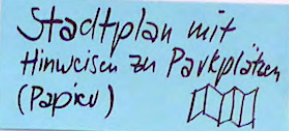 Stadtplan mit
Hinweisen zu Parkplätzen
(Papier)